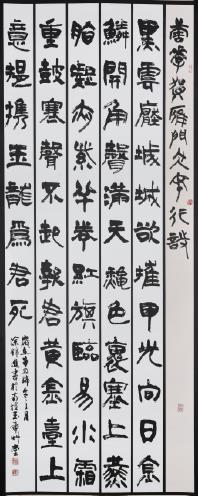 李賀雁門太守行詩
黑雲壓城城欲摧甲光向日金
鱗開角聲滿天龝色裏塞上燕
脂凝夜紫半卷紅旗臨易水霜
重鼓寒聲不起報君黃金臺上
意提攜玉龍爲君死